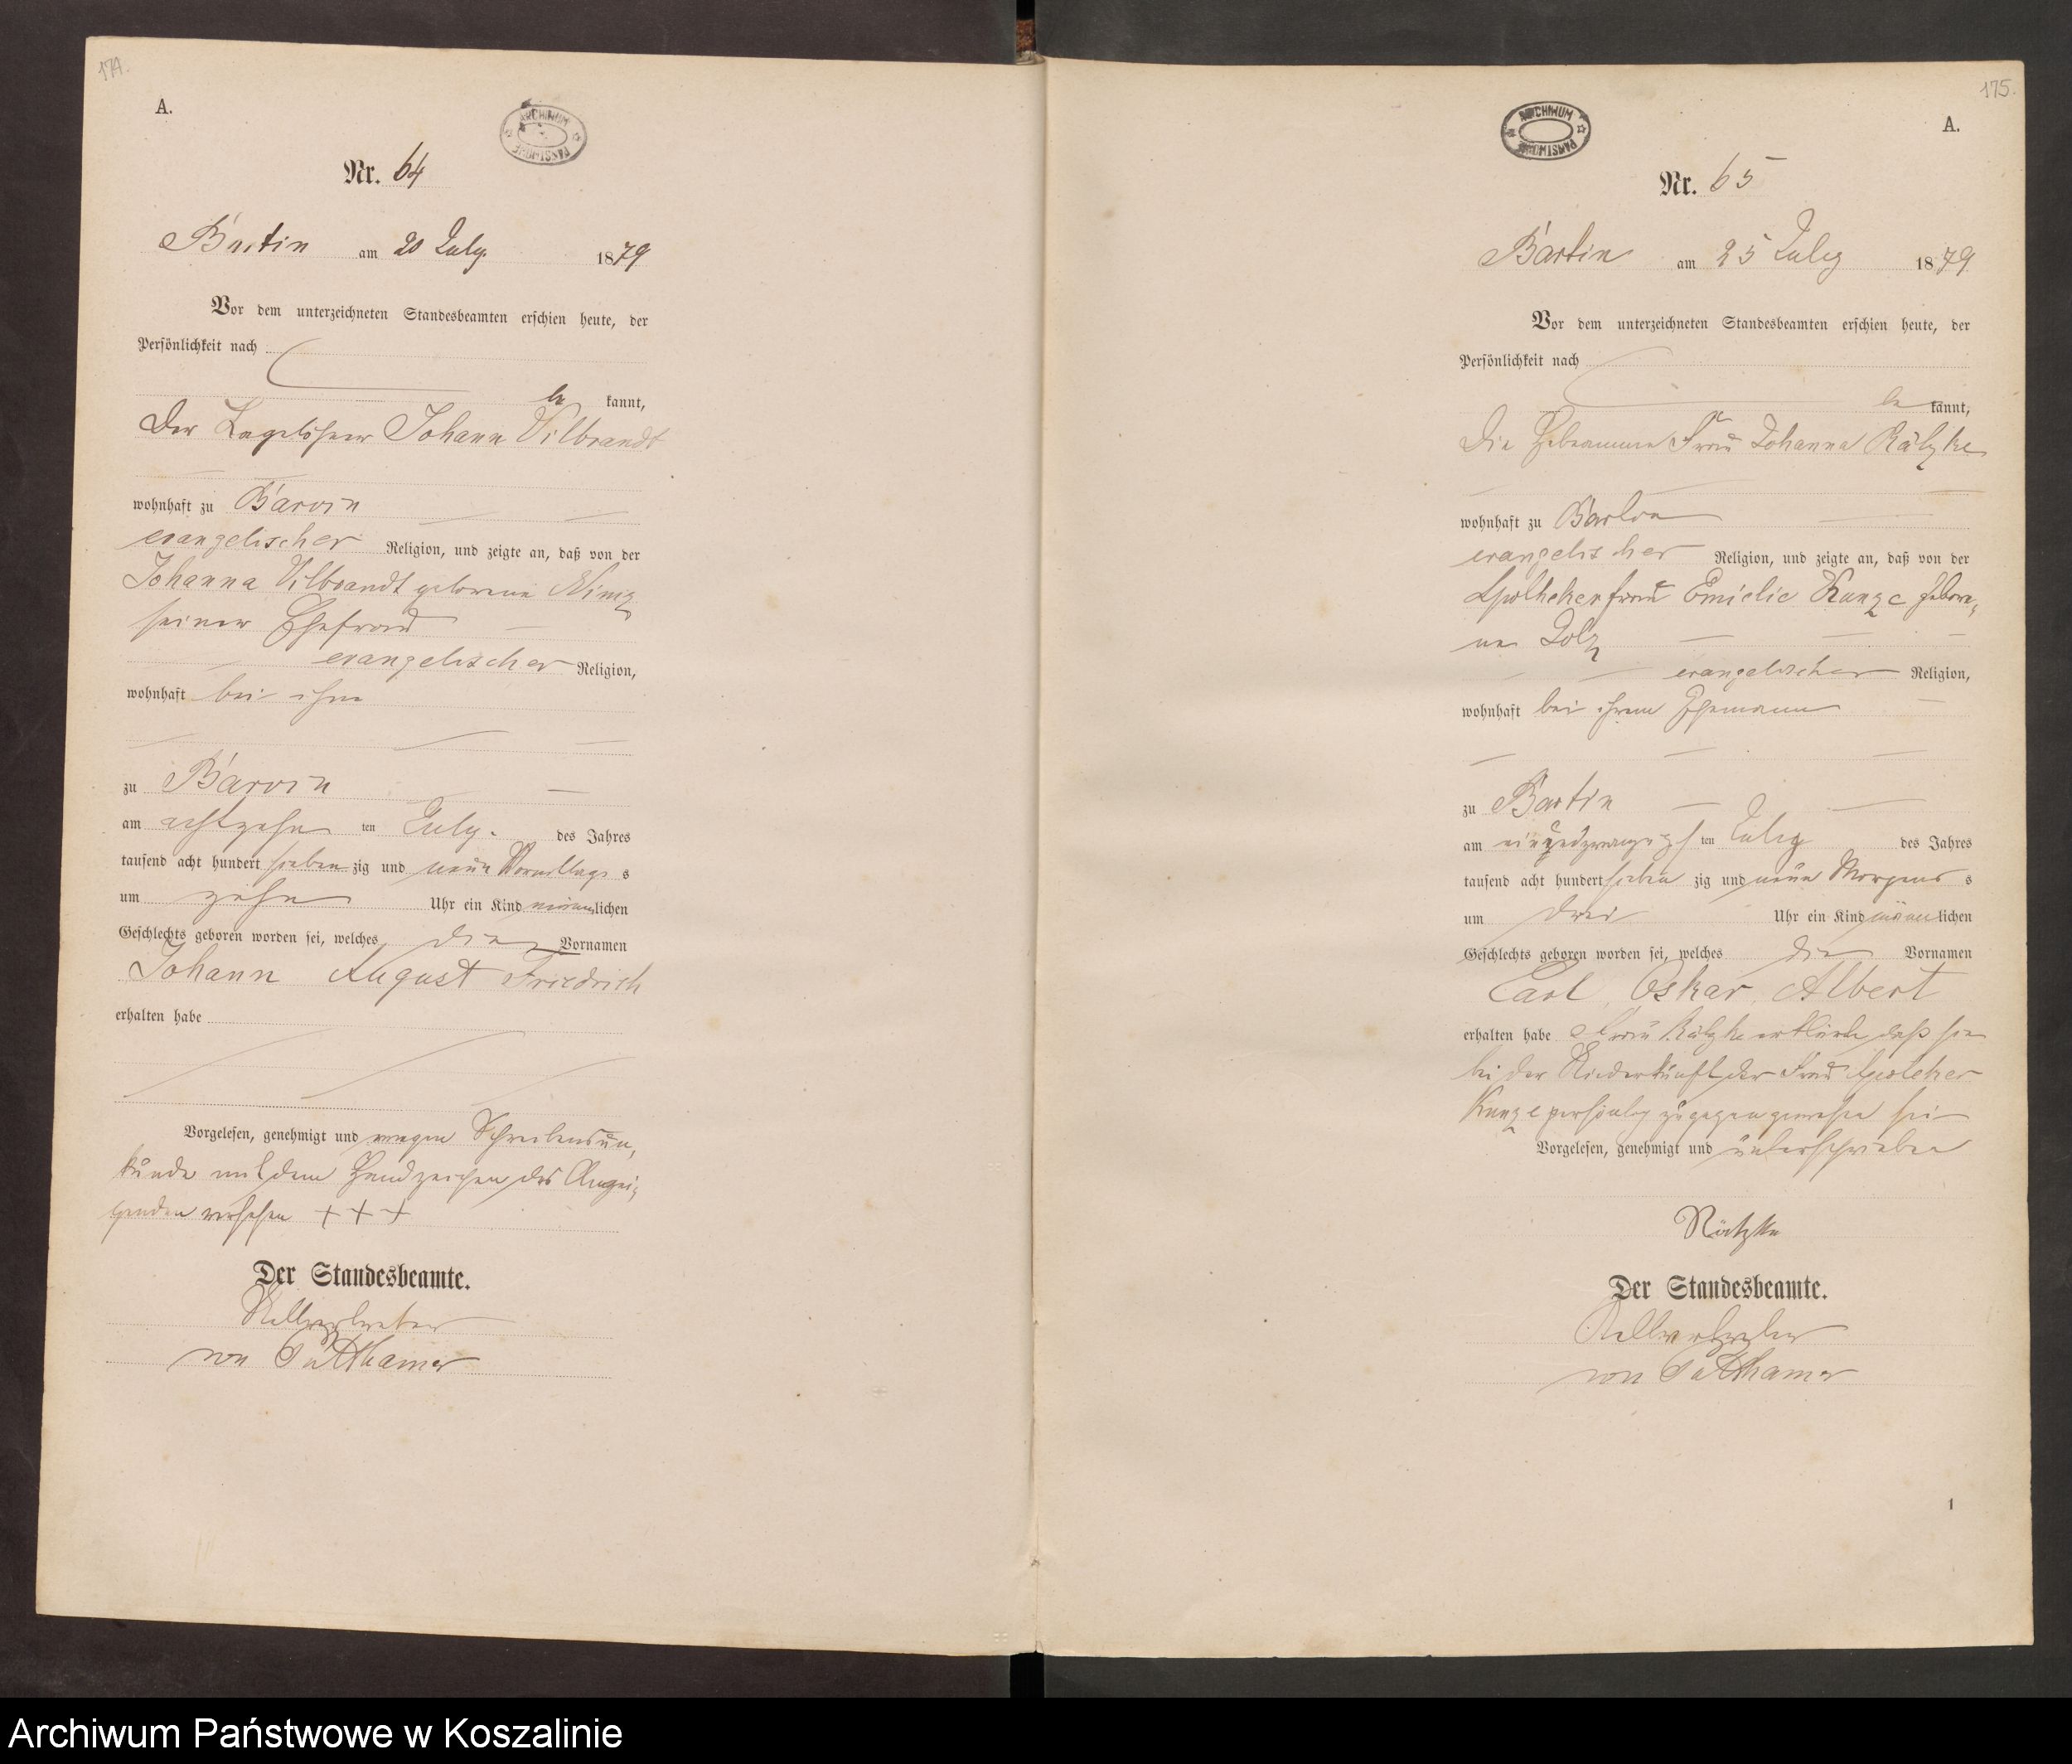 174.
A.
ARCHIWUM PAŃSTWOWE
Nr. 64
Bartin am 20 July. 1879
Vor dem unterzeichneten Standesbeamten erschien heute, der
Persönlichkeit nach
be kannt,
Der Tagelöhner Johann Vilbrandt
wohnhaft zu Barvin
evangelischer Religion, und zeigte an, daß von der
Johanna Vilbrandt geborene Nimz
seiner Ehefrau
evangelischer Religion,
wohnhaft bei ihm
zu Barvin
am achtzehn ten July. des Jahres
tausend acht hundert sieben zig und neun Vormittags
um zehn Uhr ein Kind männlichen
Geschlechts geboren worden sei, welches die Vornamen
Johann August Friedrich
erhalten habe
Vorgelesen, genehmigt und wegen Schreibensun,
kunde mit dem Handzeichen des Anzei,
genden versehen + + +
Der Standesbeamte.
Stellvertreter
von Puttkamer
175.
A.
ARCHIWUM PAŃSTWOWE
Nr. 65
Bartin am 25 July 1879
Vor dem unterzeichneten Standesbeamten erschien heute, der
Persönlichkeit nach
be kannt,
Die Hebamme Frau Johanna Rätzke
wohnhaft zu Bartin
evangelischer Religion, und zeigte an, daß von der
Apothekerfrau Emielie Kunze gebore,
ne
evangelischer Religion,
wohnhaft bei ihrem Ehemann
zu Bartin
am einundzwanzigsten July des Jahres
tausend acht hundert sieben zig und neun Morgens
um drei Uhr ein Kind männlichen
Geschlechts geboren worden sei, welches die Vornamen
Carl, Oskar, Albert
erhalten habe Frau Rätzke erklärte, daß sie
bei der Niederkunft der Frau Apotheker
Kunze persönlich zugegen gewesen sei
Vorgelesen, genehmigt und unterschrieben
Rätzke
Der Standesbeamte.
Stellvertreter
von Puttkamer
1
Archiwum Państwowe w Koszalinie